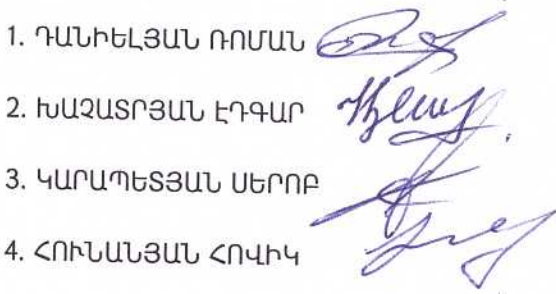 1. ԴԱՆԻԵԼՅԱՆ ՌՈՄԱՆ
2. ԽԱՉԱՏՐՅԱՆ ԷԴԳԱՐ
3. ԿԱՐԱՊԵՏՅԱՆ ՍԵՐՈԲ
4. ՀՈՒՆԱՆՅԱՆ ՀՈՎԻԿ